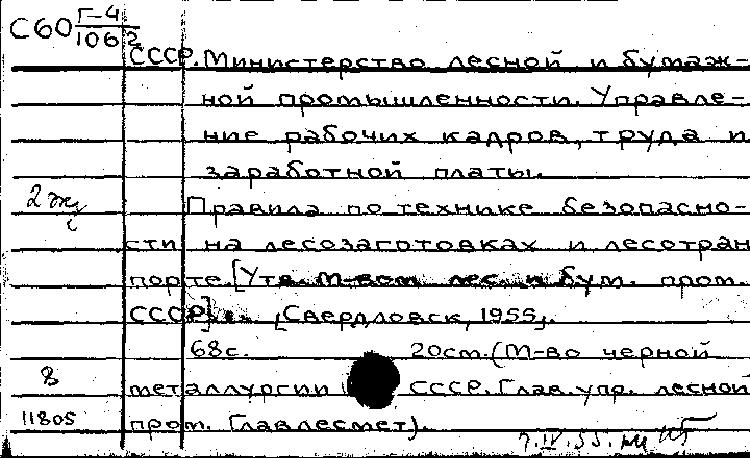 С60 Г-4
106
СССР. Министерство лесной и бумаж-
ной промышленности. Управле-
ние рабочих кадров, труда и
заработной платы.
2 экз
Правила по технике безопасно-
сти на лесозаготовках и лесотран
порте. [Утв. М-вом лес. и бум. пром.
СССР]. [Свердловск, 1955].
68с. 20см. (М-во черной
8
металлургии СССР. Глав. упр. лесной
11805
пром. Главлесмет).
7.IV.55.